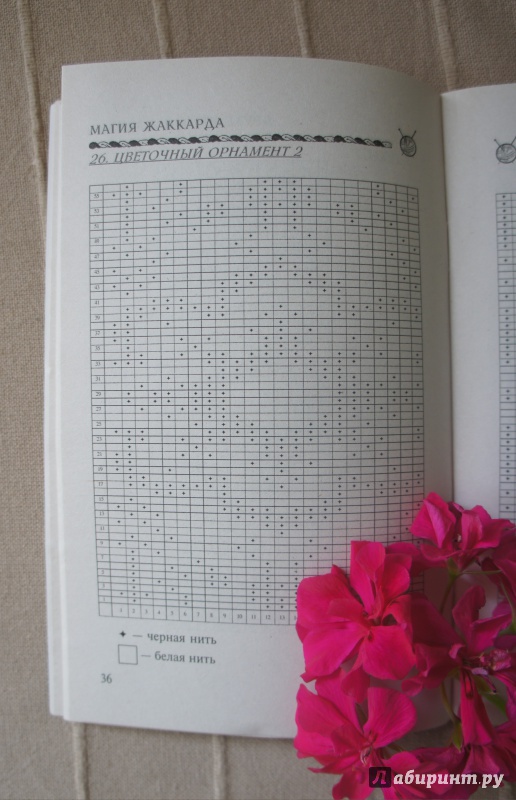 МАГИЯ ЖАККАРДА
26. ЦВЕТОЧНЫЙ ОРНАМЕНТ 2
1 2 3 4 5 6 7 8 9 10 11 12 13
✦ — черная нить
— белая нить
36
Лабиринт.ру